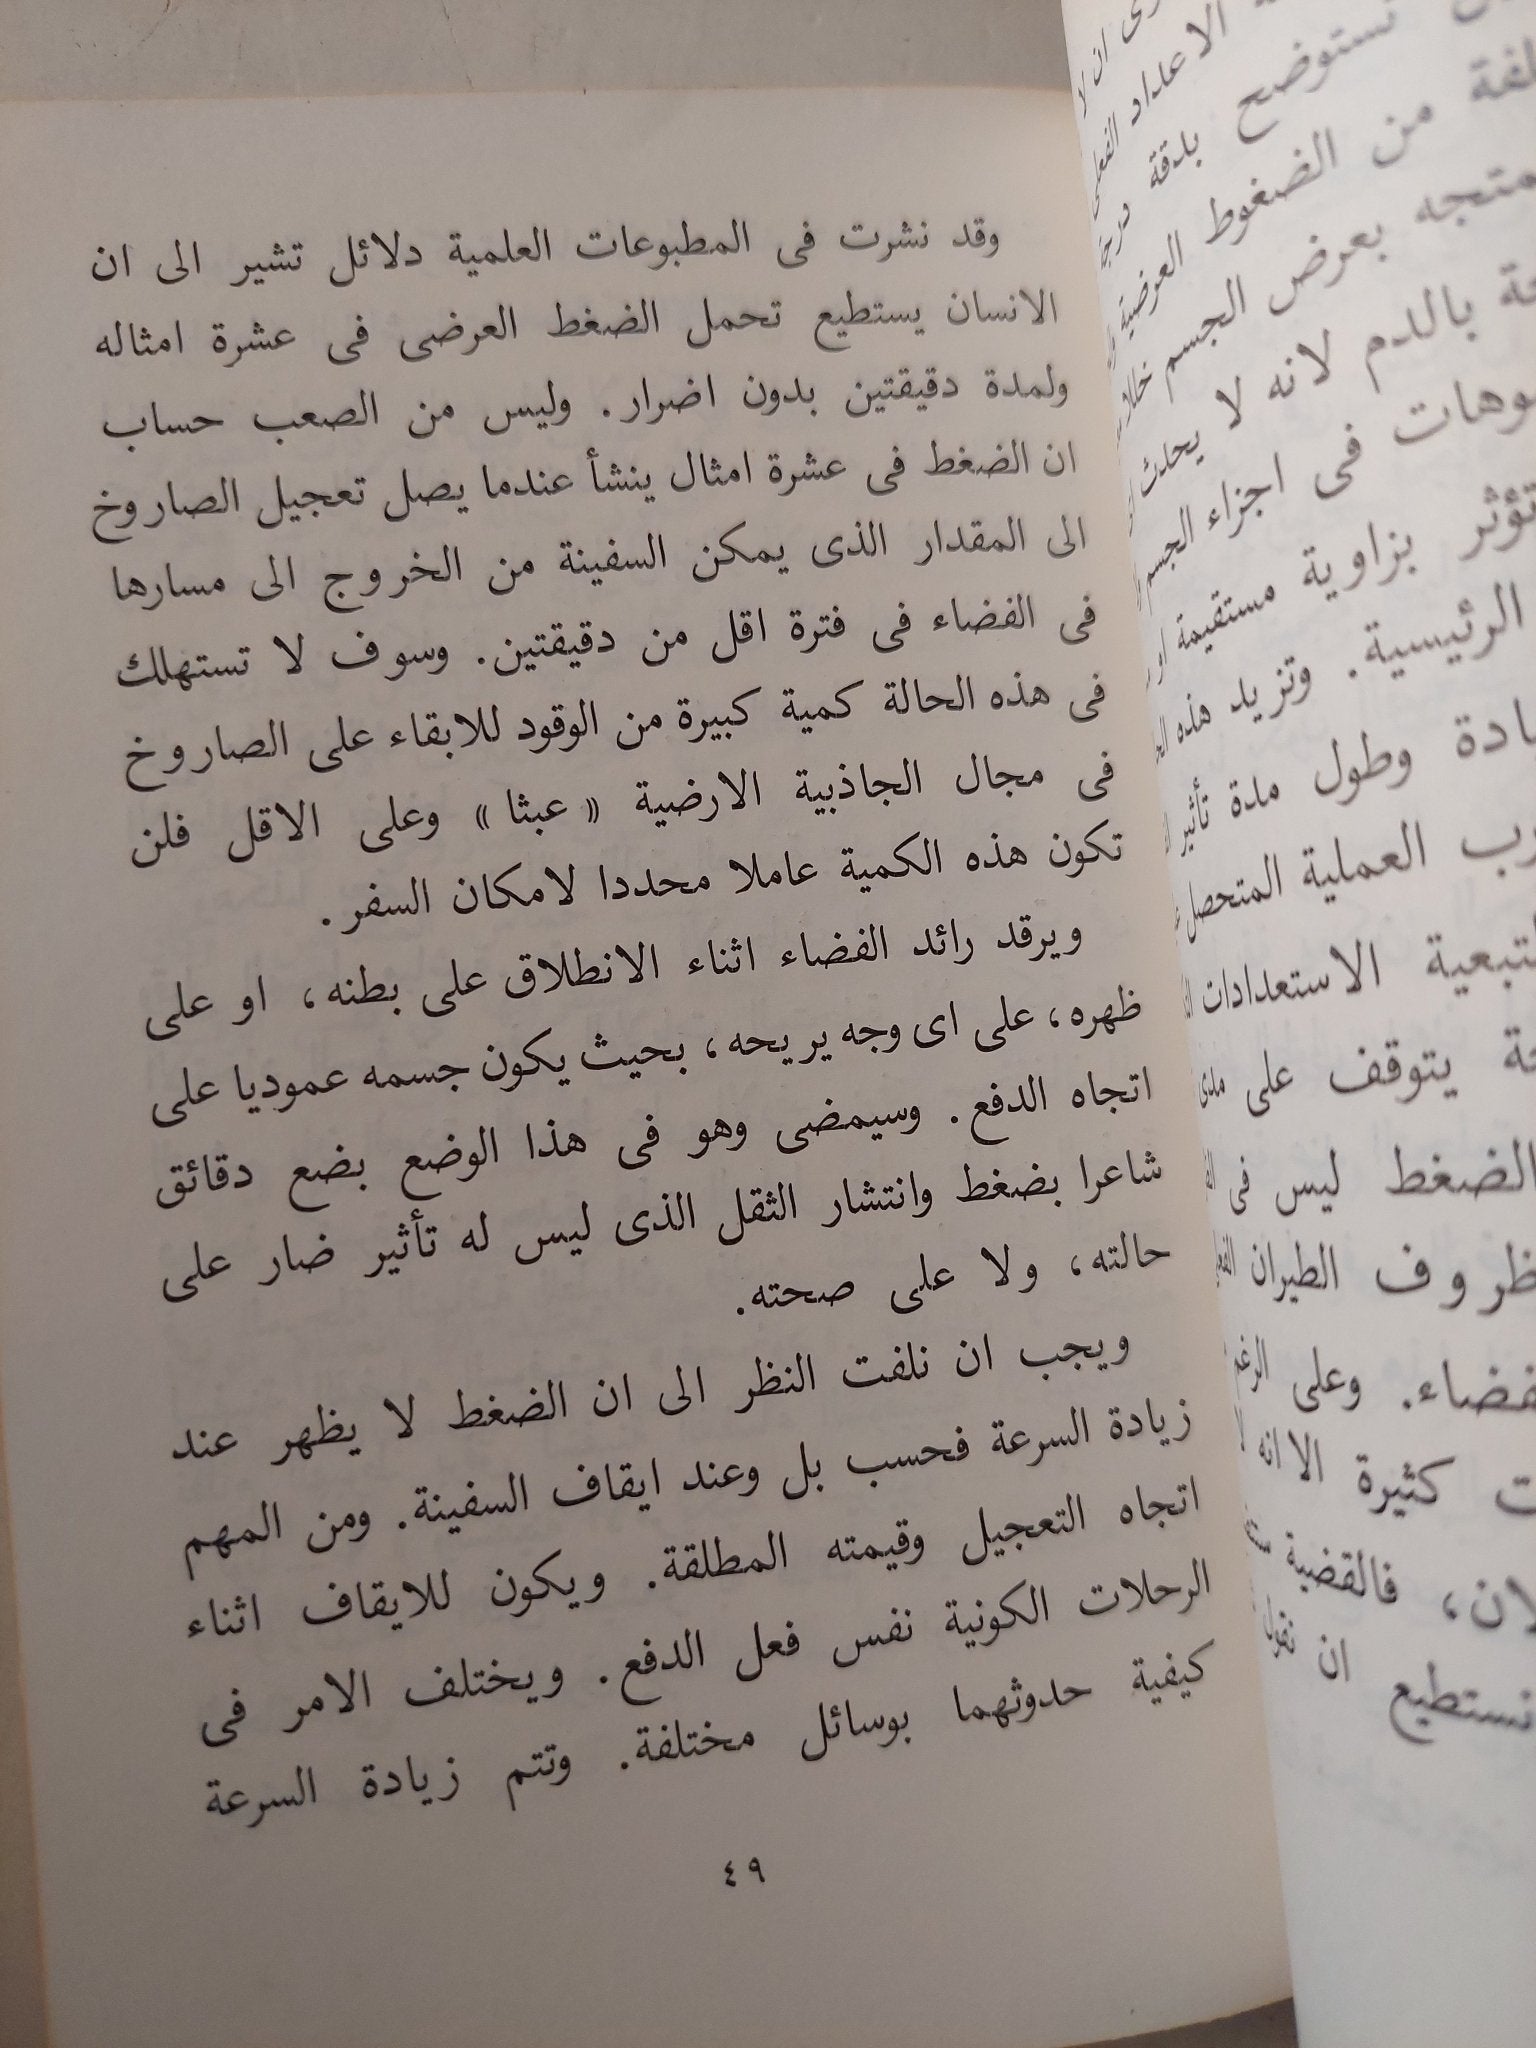 وقد نشرت فى المطبوعات العلمية دلائل تشير الى ان
الانسان يستطيع تحمل الضغط العرضى فى عشرة امثاله
ولمدة دقيقتين بدون اضرار. وليس من الصعب حساب
ان الضغط فى عشرة امثال ينشأ عندما يصل تعجيل الصاروخ
الى المقدار الذى يمكن السفينة من الخروج الى مسارها
فى الفضاء فى فترة اقل من دقيقتين. وسوف لا تستهلك
فى هذه الحالة كمية كبيرة من الوقود للابقاء على الصاروخ
فى مجال الجاذبية الارضية « عبثا » وعلى الاقل فلن
تكون هذه الكمية عاملا محددا لامكان السفر.
ويرقد رائد الفضاء اثناء الانطلاق على بطنه، او على
ظهره، على اى وجه يريحه، بحيث يكون جسمه عموديا على
اتجاه الدفع. وسيمضى وهو فى هذا الوضع بضع دقائق
شاعرا بضغط وانتشار الثقل الذى ليس له تأثير ضار على
حالته، ولا على صحته.
ويجب ان نلفت النظر الى ان الضغط لا يظهر عند
زيادة السرعة فحسب بل وعند ايقاف السفينة. ومن المهم
اتجاه التعجيل وقيمته المطلقة. ويكون للايقاف اثناء
الرحلات الكونية نفس فعل الدفع. ويختلف الامر فى
كيفية حدوثهما بوسائل مختلفة. وتتم زيادة السرعة
٤٩
الاعداد
نستوضح بدقة
من الضغوط العرضية
بعرض الجسم
بالدم لانه لا يحدث
فى اجزاء الجسم
تؤثر بزاوية مستقيمة او
الرئيسية. وتزيد هذه
وطول مدة تأثير
العملية المتحصل
الاستعدادات
يتوقف على مدى
الضغط ليس فى
الطيران
وعلى
كثيرة الا انه
فالقضية
نستطيع ان نقول